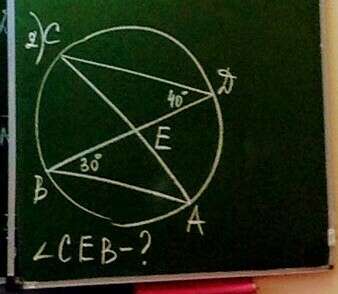 2) C
D
40°
E
30°
B
A
∠CEB-?